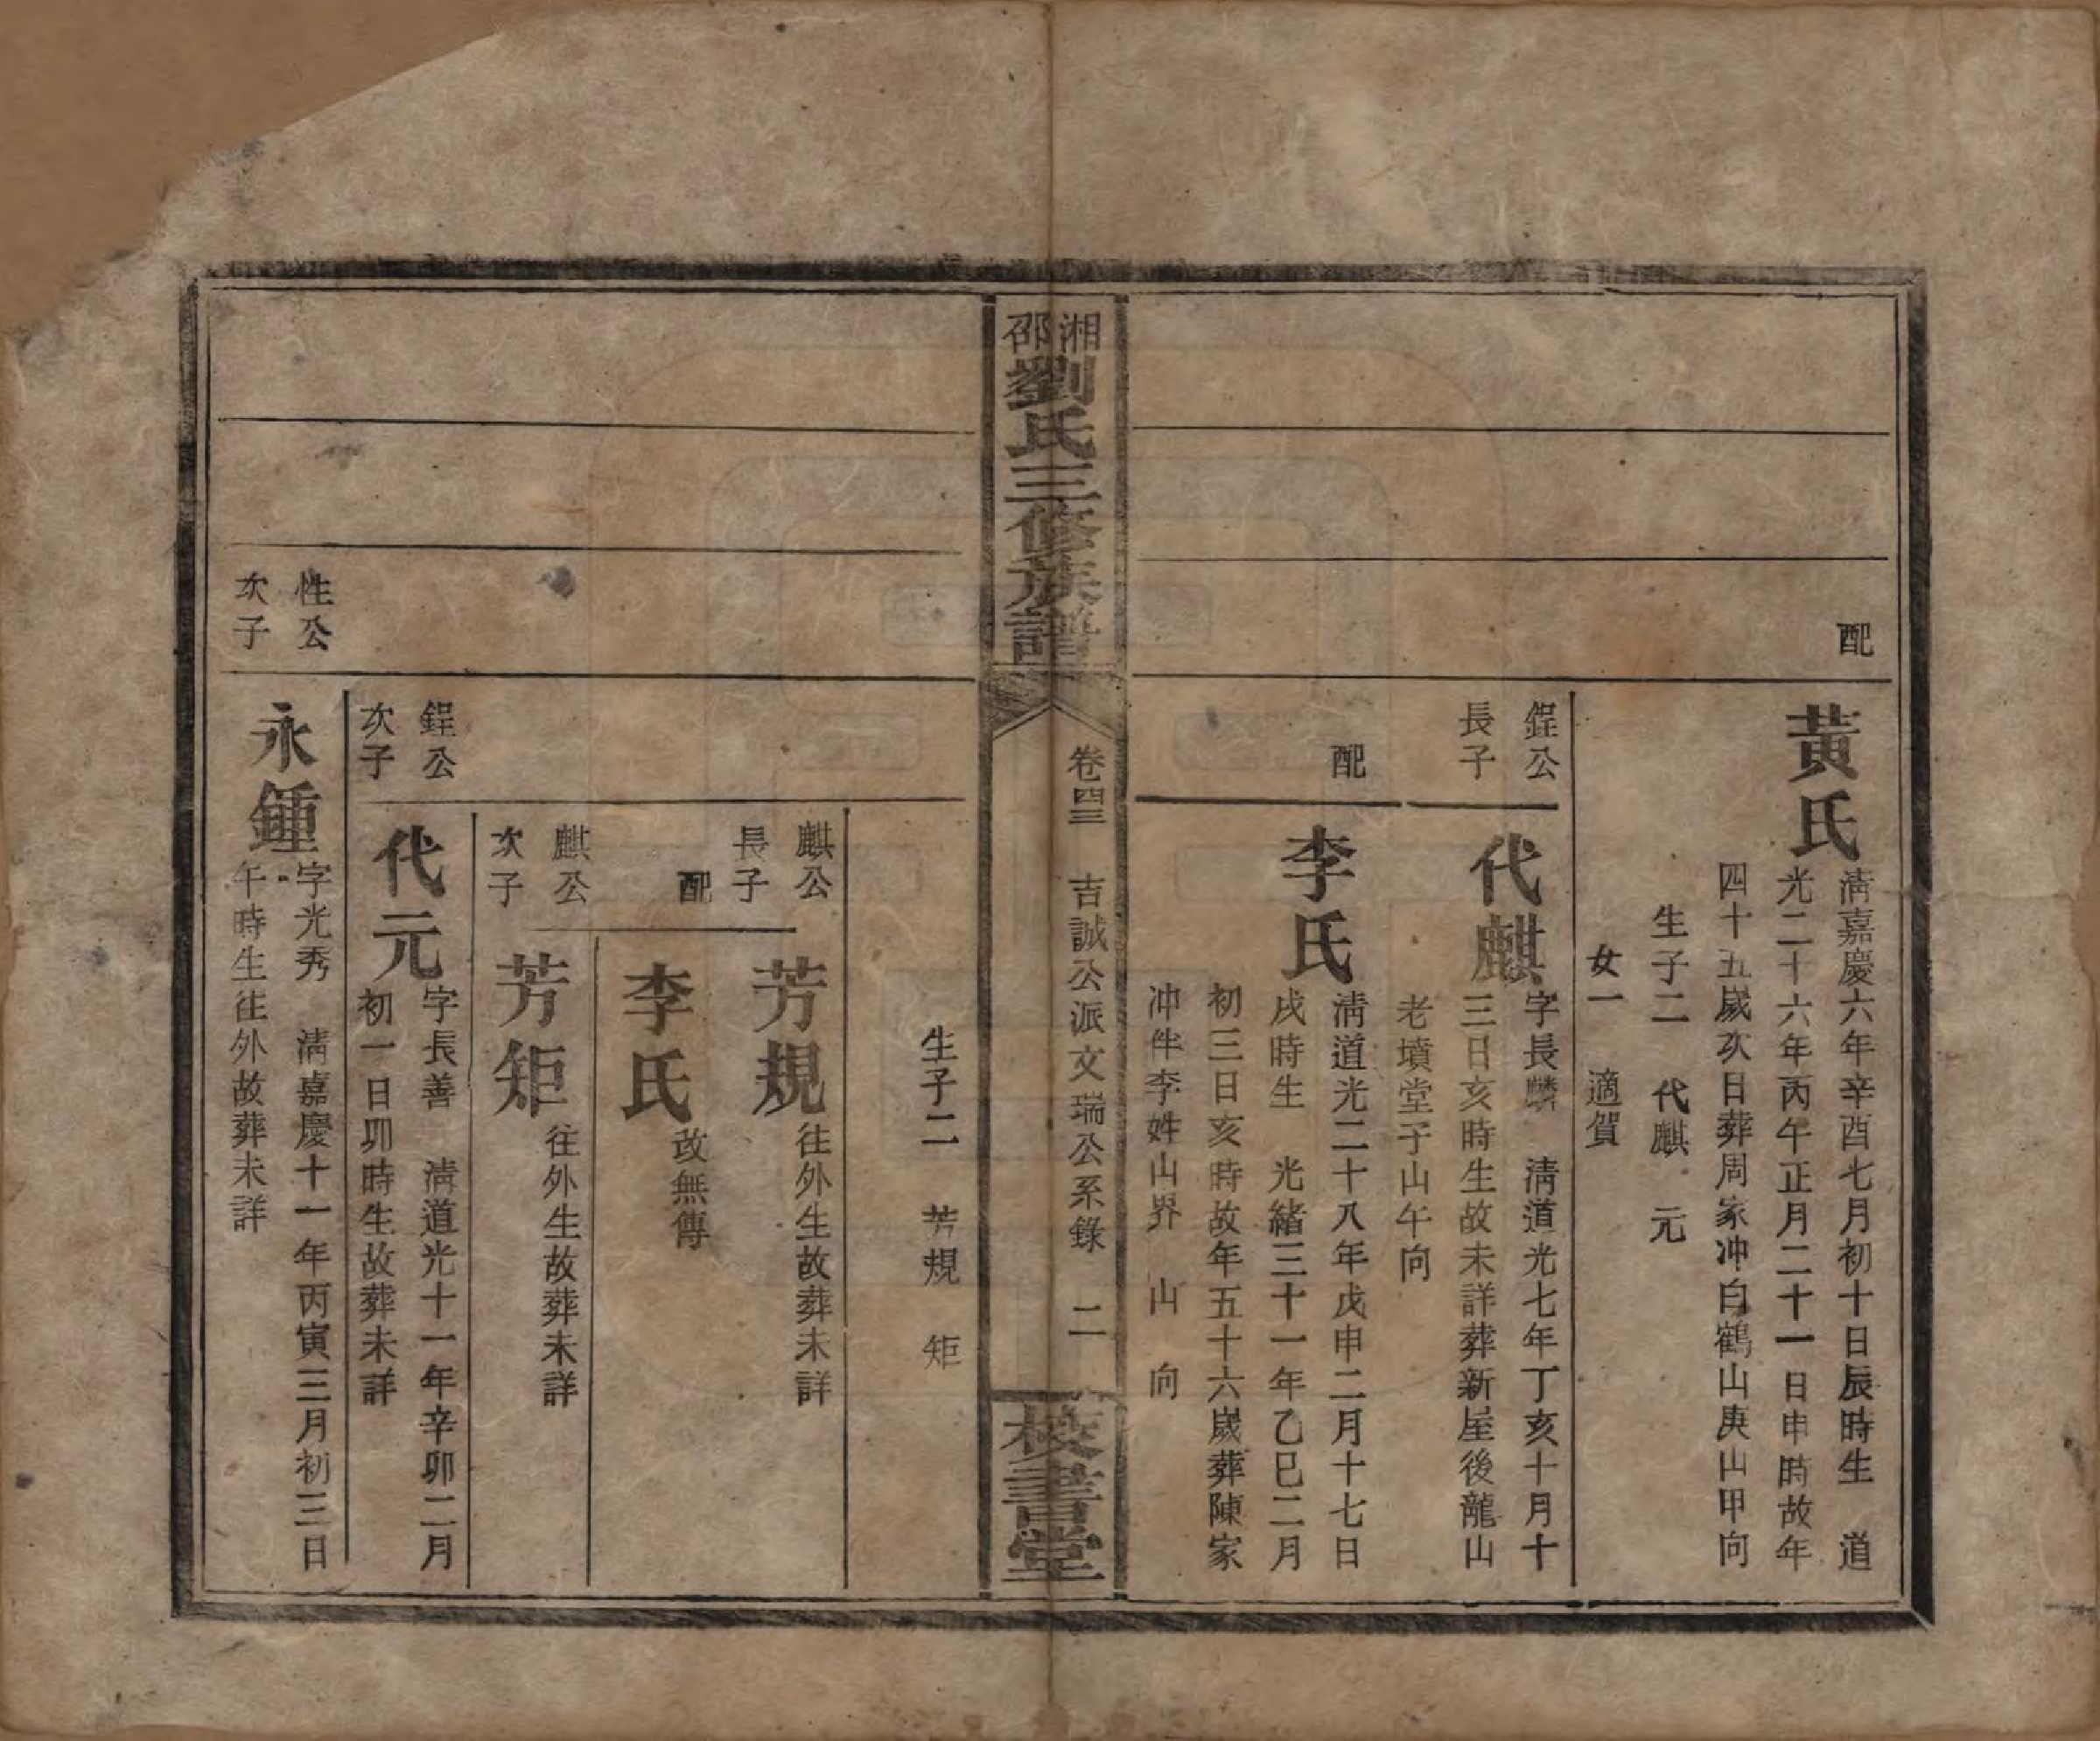 配
黃氏
清嘉慶六年辛酉七月初十日辰時生　道
光二十六年丙午正月二十一日申時故年
四十五歲次日葬周家冲白鶴山庚山甲向
生子二　代麒　元
女一　適賀
鋥公
長子
代麒
字長麟　清道光七年丁亥十月十
三日亥時生故未詳葬新屋後龍山
老墳堂子山午向
配
李氏
清道光二十八年戊申二月十七日
戌時生　光緒三十一年乙巳二月
初三日亥時故年五十六歲葬陳家
冲伴李姓山界　山　向
湘邵劉氏三修族譜
卷四三　吉誠公派文瑞公系錄　二
校書堂
生子二　芳規　矩
麒公
長子
芳規
往外生故葬未詳
配
李氏
改無傳
麒公
次子
芳矩
往外生故葬未詳
鋥公
次子
代元
字長善　清道光十一年辛卯二月
初一日卯時生故葬未詳
性公
次子
永鍾
字光秀　清嘉慶十一年丙寅三月初三日
午時生往外故葬未詳